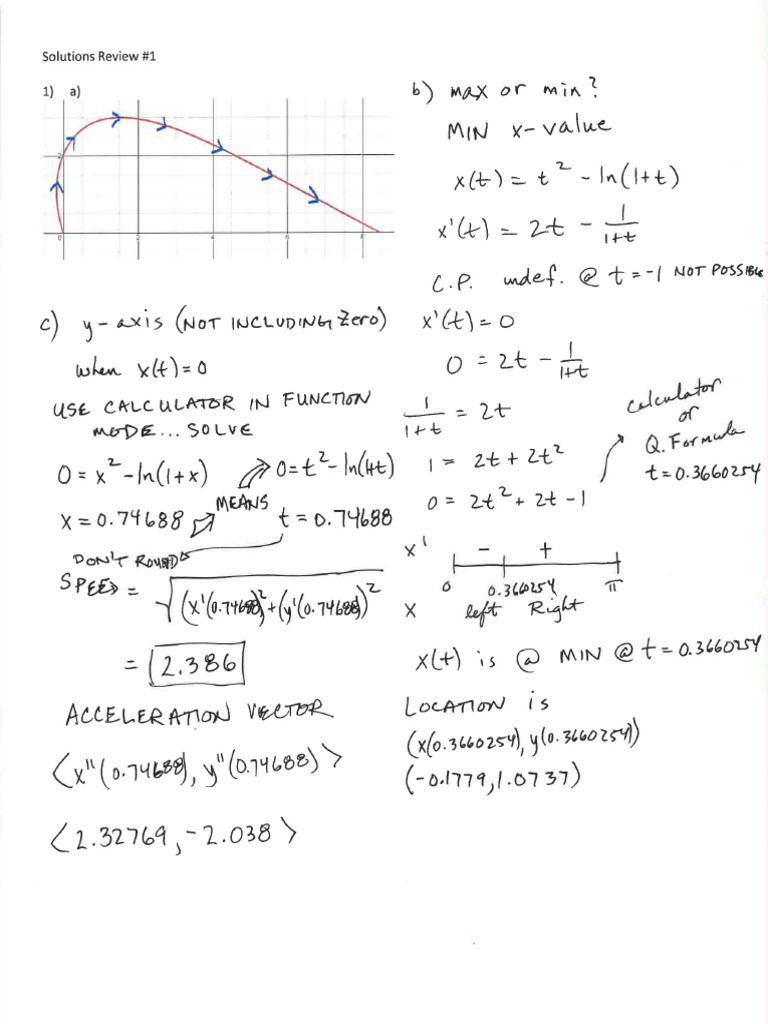 Solutions Review #1
1) a)
2
0 2 4 6 8
b) max or min?
MIN x-value
x(t) = t² - ln(1+t)
x'(t) = 2t - 1/(1+t)
C.P. undef. @ t = -1 NOT POSSIBLE
x'(t) = 0
0 = 2t - 1/(1+t)
1/(1+t) = 2t
1 = 2t + 2t²
0 = 2t² + 2t - 1
calculator
or
Q. Formula
t = 0.3660254
x' - +
0 0.3660254 π
x left Right
x(t) is @ MIN @ t = 0.3660254
LOCATION is
(x(0.3660254), y(0.3660254))
(-0.1779, 1.0737)
c) y-axis (NOT INCLUDING zero)
when x(t) = 0
USE CALCULATOR IN FUNCTION
MODE... SOLVE
0 = x² - ln(1+x) 0 = t² - ln(1+t)
MEANS
x = 0.74688 t = 0.74688
DON'T ROUND
SPEED = √((x'(0.74688))² + (y'(0.74688))²
= 2.386
ACCELERATION VECTOR
⟨x''(0.74688), y''(0.74688)⟩
⟨2.32769, -2.038⟩